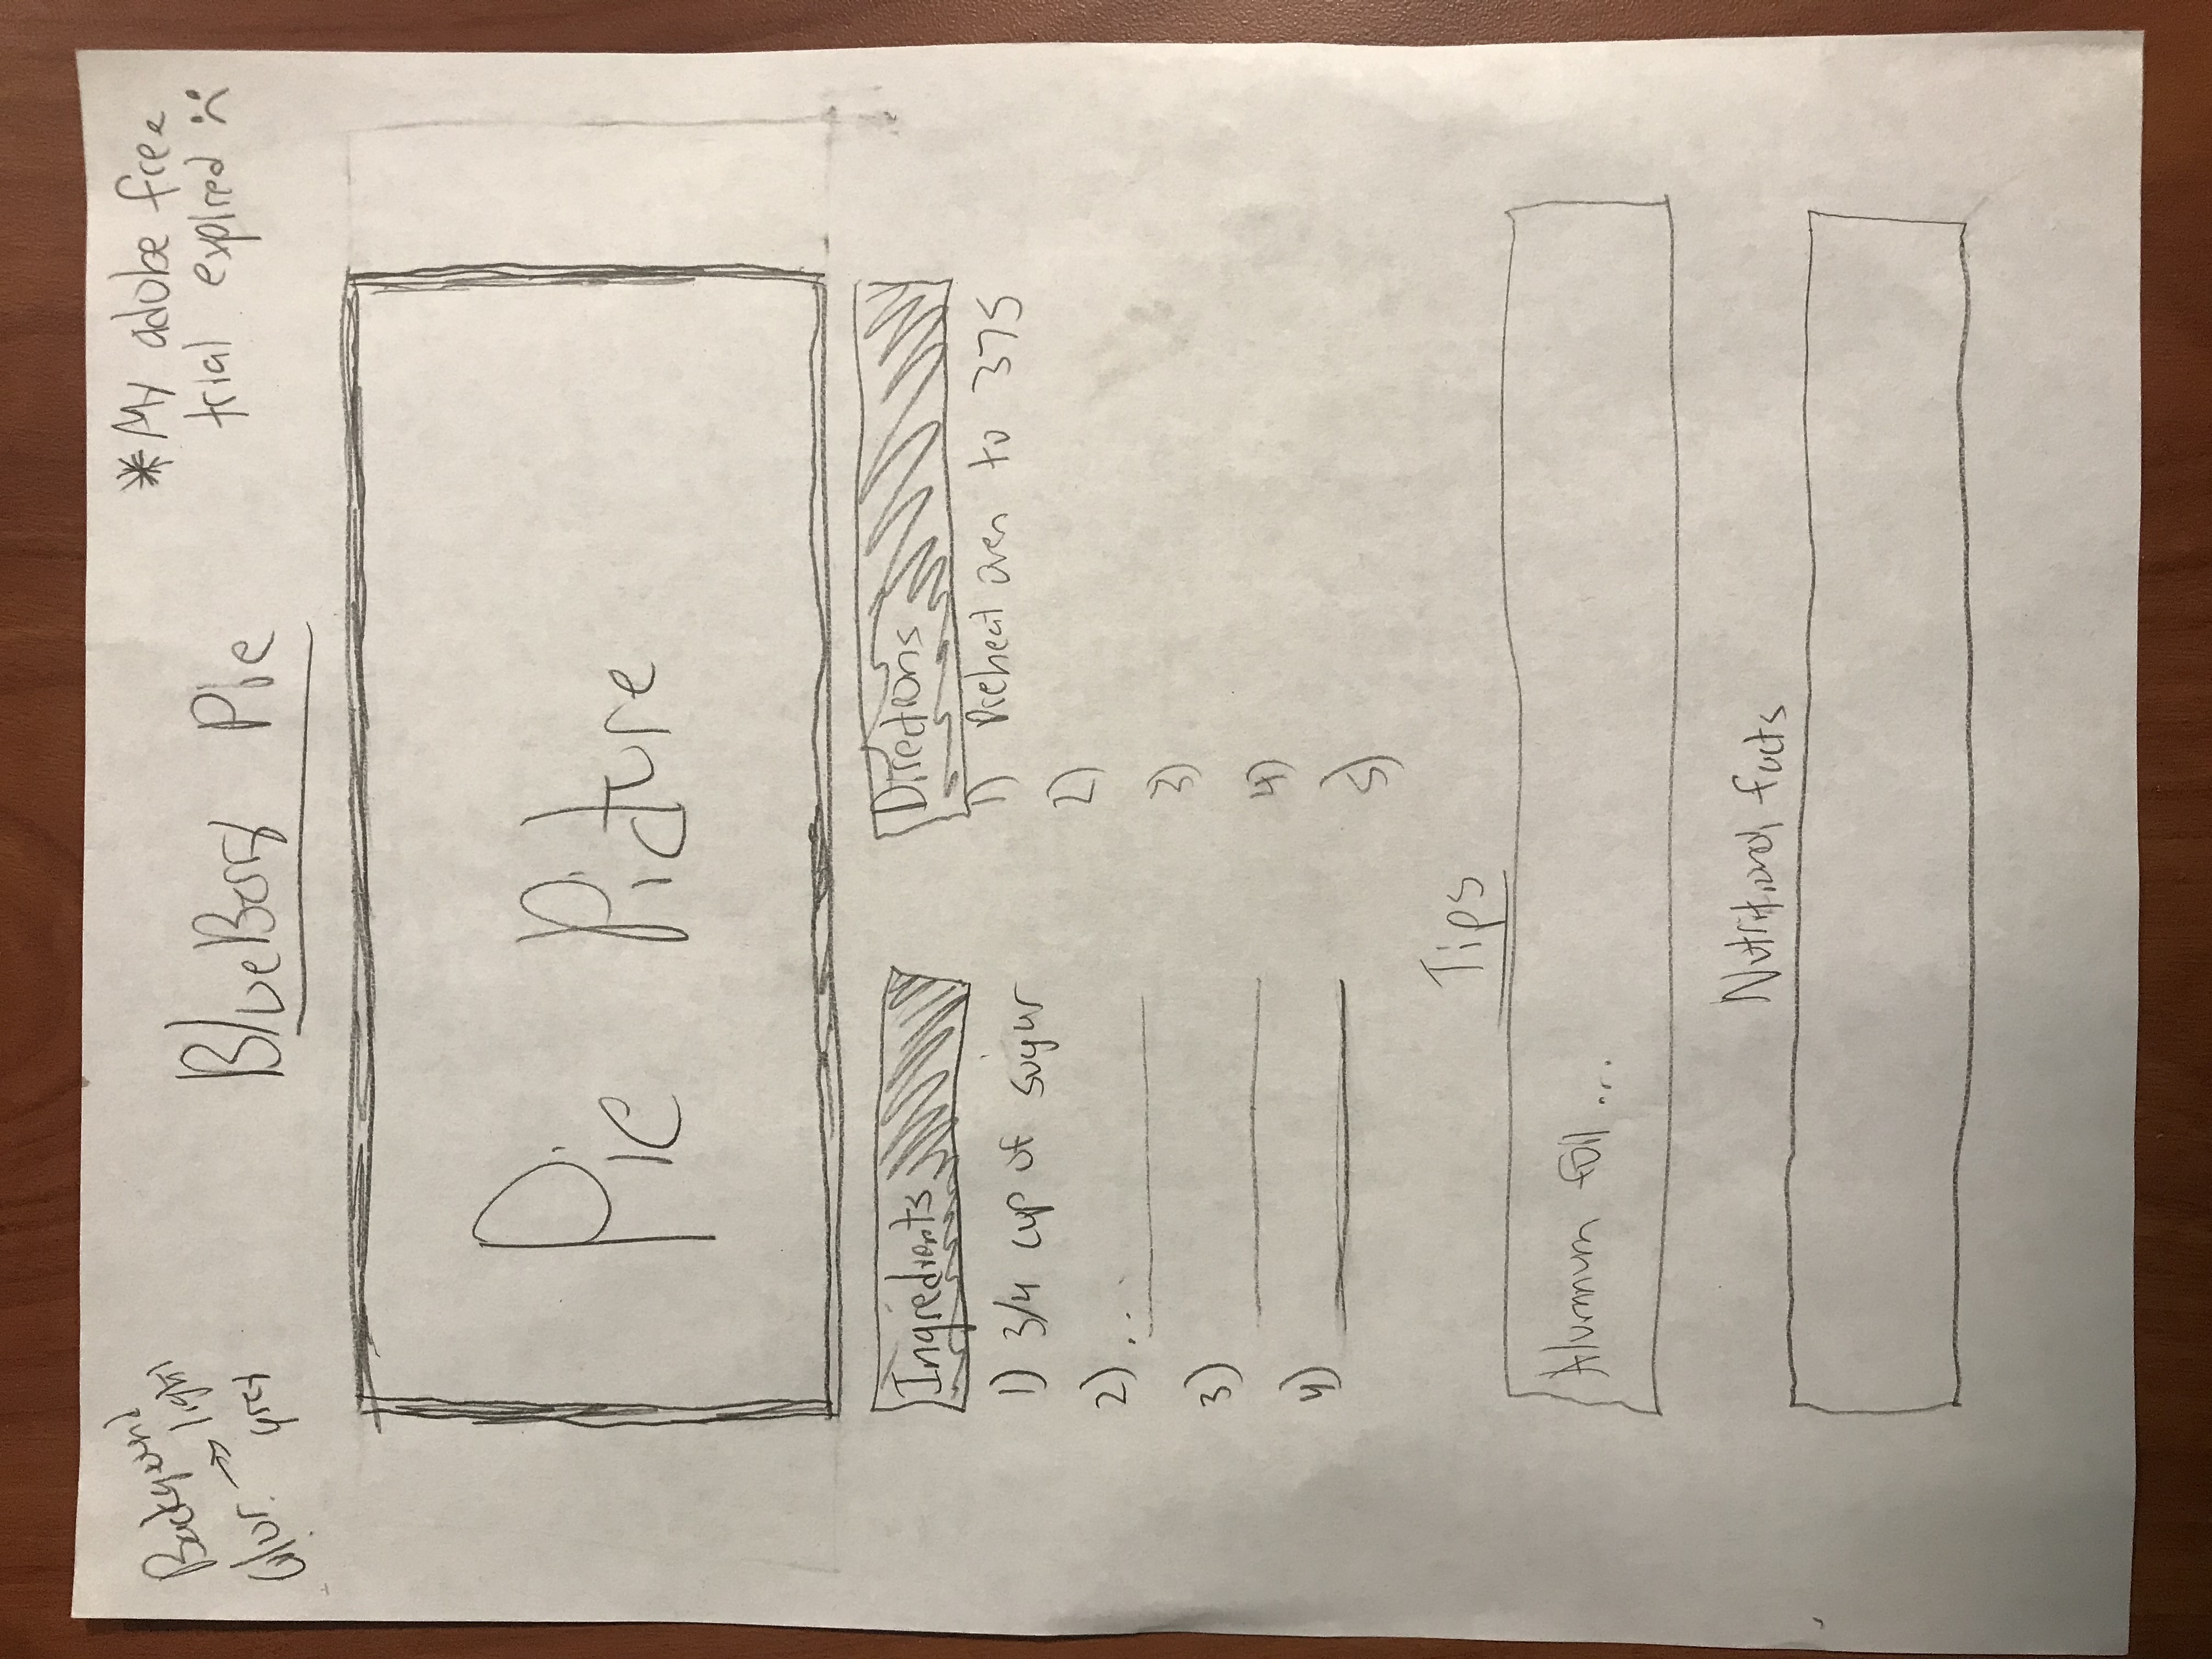 Background
Color → light
grey
* My adobe free
trial expired :(
BlueBerry Pie
Pie Picture
Ingredients
1) 3/4 cup of sugar
2) ...
3)
4)
Directions
1) Preheat oven to 375
2)
3)
4)
5)
Tips
Aluminum foil ...
Nutritional facts